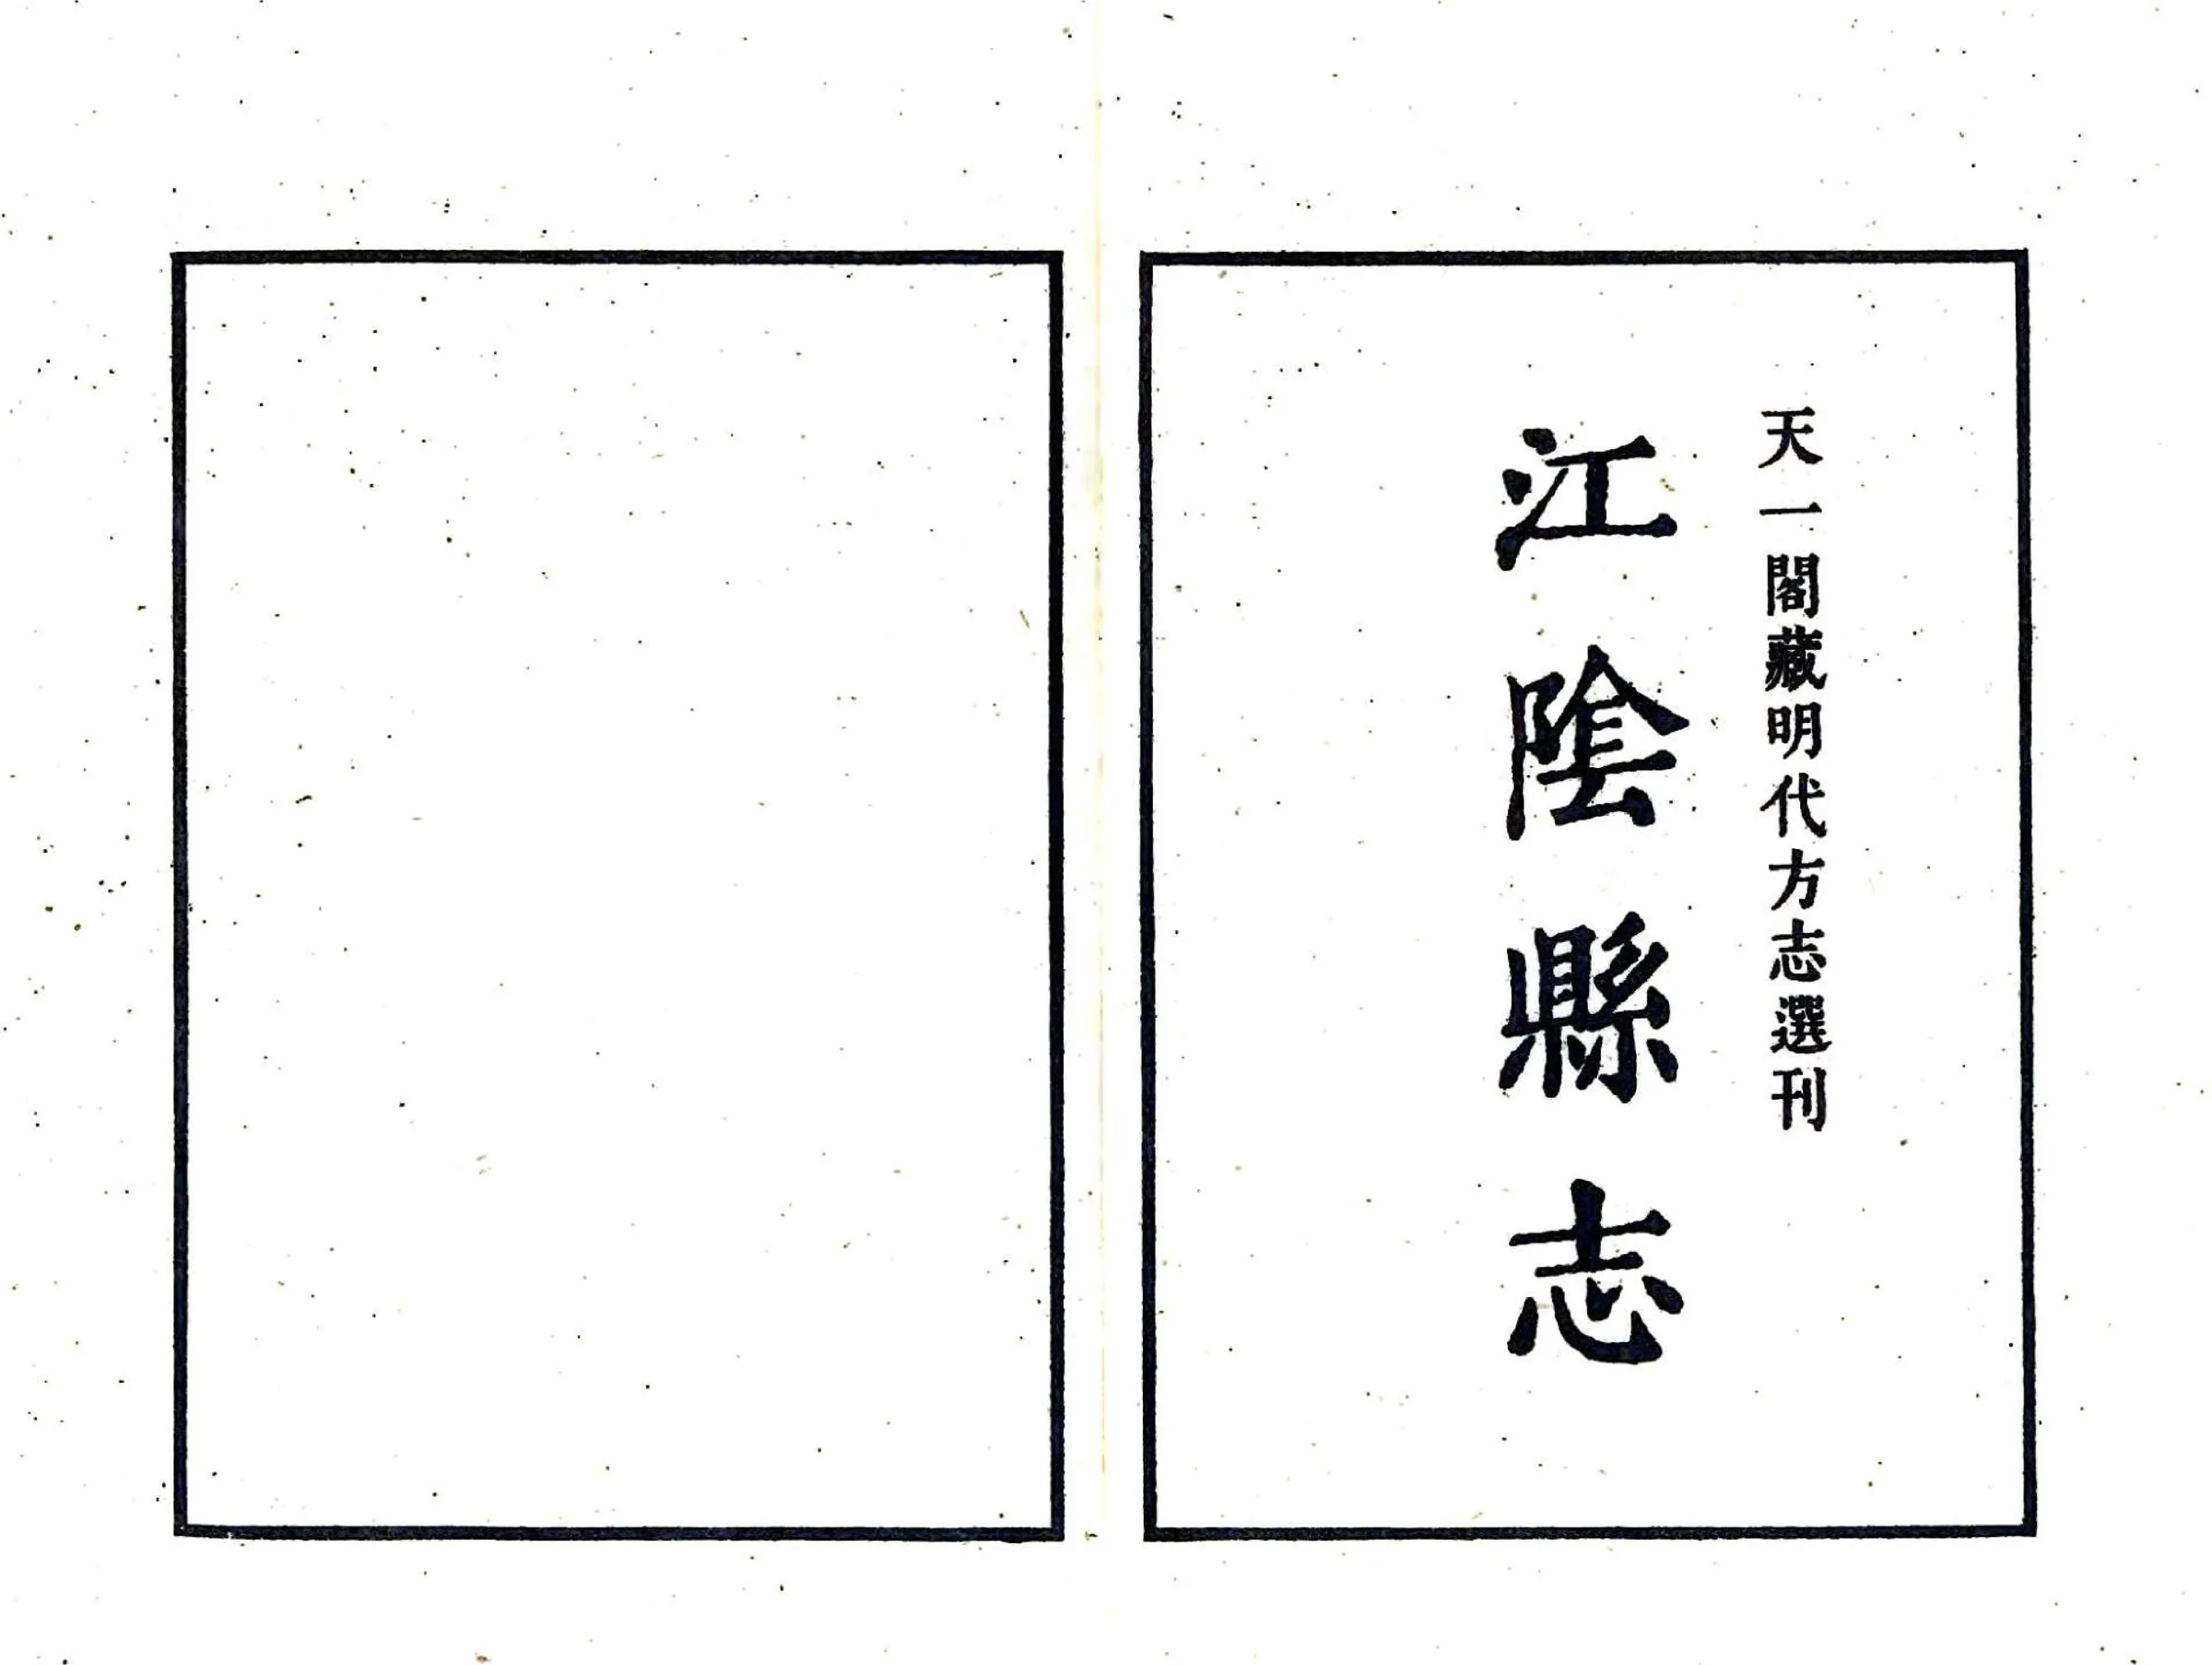 天一閣藏明代方志選刊
江陰縣志